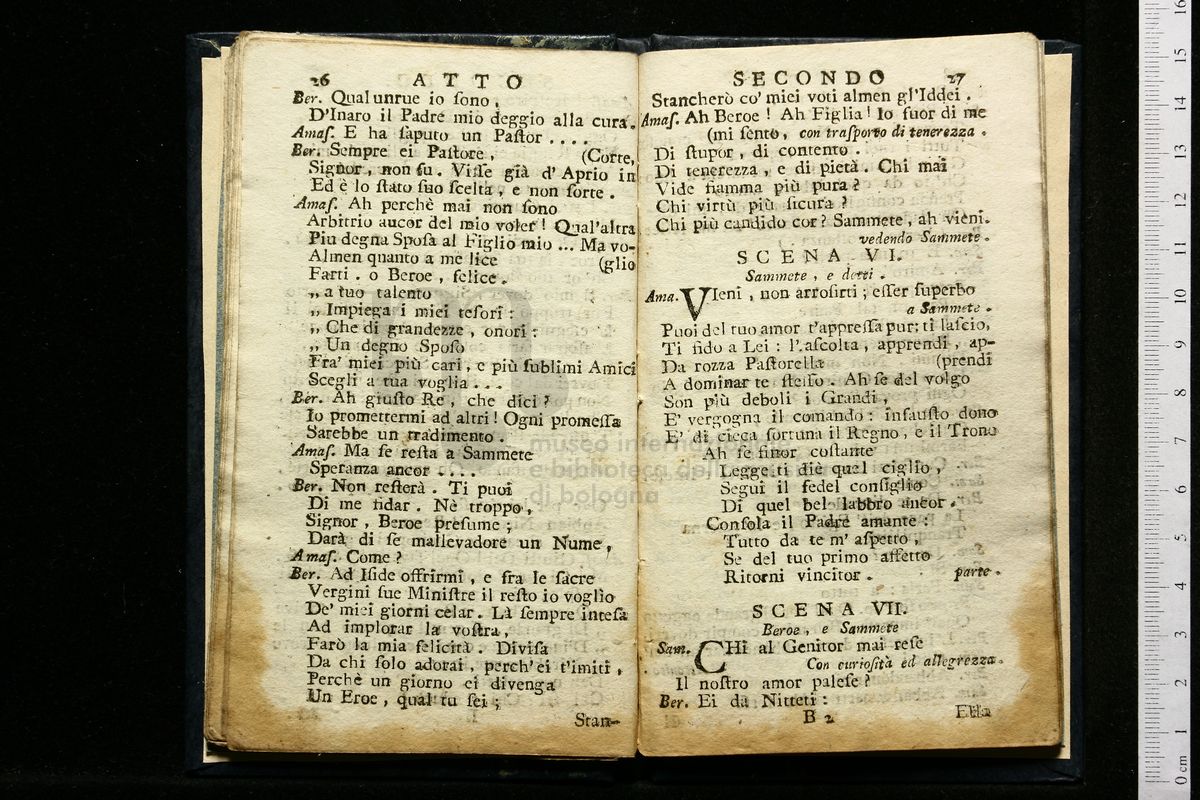 26 ATTO
Ber. Qualunrue io ſono,
D'Inaro il Padre mio deggio alla cura.
Amaſ. E ha ſaputo un Paſtor ....
Ber. Sempre ei Paſtore, (Corte,
Signor, non fu. Viſſe già d'Aprio in
Ed è lo ſtato ſuo ſcelta, e non ſorte.
Amaſ. Ah perchè mai non ſono
Arbitrio aucor del mio voler! Qual'altra
Piu degna Spoſa al Figlio mio ... Ma vo-
Almen quanto a me lice (glio
Farti. o Beroe, felice.
„ a tuo talento
„ Impiega i miei teſori:
„ Che di grandezze, onori:
„ Un degno Spoſo
Fra' miei più cari, e più ſublimi Amici
Scegli a tua voglia ...
Ber. Ah giuſto Re, che dici?
Io promettermi ad altri! Ogni promeſſa
Sarebbe un tradimento.
Amaſ. Ma ſe reſta a Sammete
Speranza ancor ....
Ber. Non reſterà. Ti puoi
Di me fidar. Nè troppo,
Signor, Beroe preſume;
Darà di ſe mallevadore un Nume,
Amaſ. Come?
Ber. Ad Iſide offrirmi, e fra le ſacre
Vergini ſue Miniſtre il reſto io voglio
De' miei giorni celar. Là ſempre inteſa
Ad implorar la voſtra,
Farò la mia felicità. Diviſa
Da chi ſolo adorai, perch'ei t'imiti,
Perchè un giorno ei divenga
Un Eroe, qual tu ſei;
Stan-
SECONDO 27
Stancherò co' miei voti almen gl'Iddei.
Amaſ. Ah Beroe! Ah Figlia! Io fuor di me
(mi ſento, con traſporto di tenerezza.
Di ſtupor, di contento.
Di tenerezza, e di pietà. Chi mai
Vide fiamma più pura?
Chi virtù più ſicura?
Chi più candido cor? Sammete, ah vieni.
vedendo Sammete.
SCENA VI.
Sammete, e detti.
Ama. VIeni, non arroſirti; eſſer ſuperbo
a Sammete.
Puoi del tuo amor t'appreſſa pur: ti laſcio,
Ti fido a Lei: l'aſcolta, apprendi, ap-
Da rozza Paſtorella (prendi
A dominar te ſteſſo. Ah ſe del volgo
Son più deboli i Grandi,
E' vergogna il comando: infauſto dono
E' di cieca fortuna il Regno, e il Trono
Ah ſe finor coſtante
Legge ti diè quel ciglio,
Segui il fedel conſiglio
Di quel bel labbro ancor.
Conſola il Padre amante:
Tutto da te m'aſpetto,
Se del tuo primo affetto
Ritorni vincitor. parte.
SCENA VII.
Beroe, e Sammete
Sam. CHi al Genitor mai reſe
Con curioſità ed allegrezza.
Il noſtro amor paleſe?
Ber. Ei da Nitteti:
B 2 Ella
museo internazionale
e biblioteca della musica
di bologna
0 cm 1 2 3 4 5 6 7 8 9 10 11 12 13 14 15 16